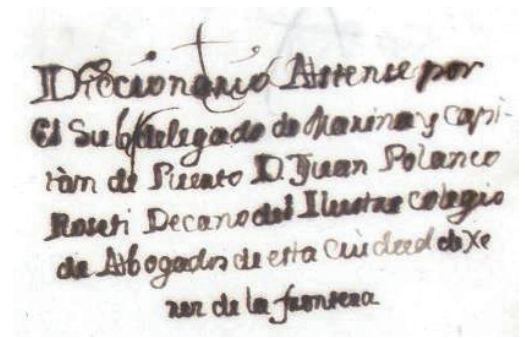 Diccionario Astense por
El Subdelegado de Marina y Capi-
tàn de Puerto D. Juan Polanco
Roseti Decano del Ilustre colegio
de Abogados de esta Ciudad de Xe
rez de la frontera